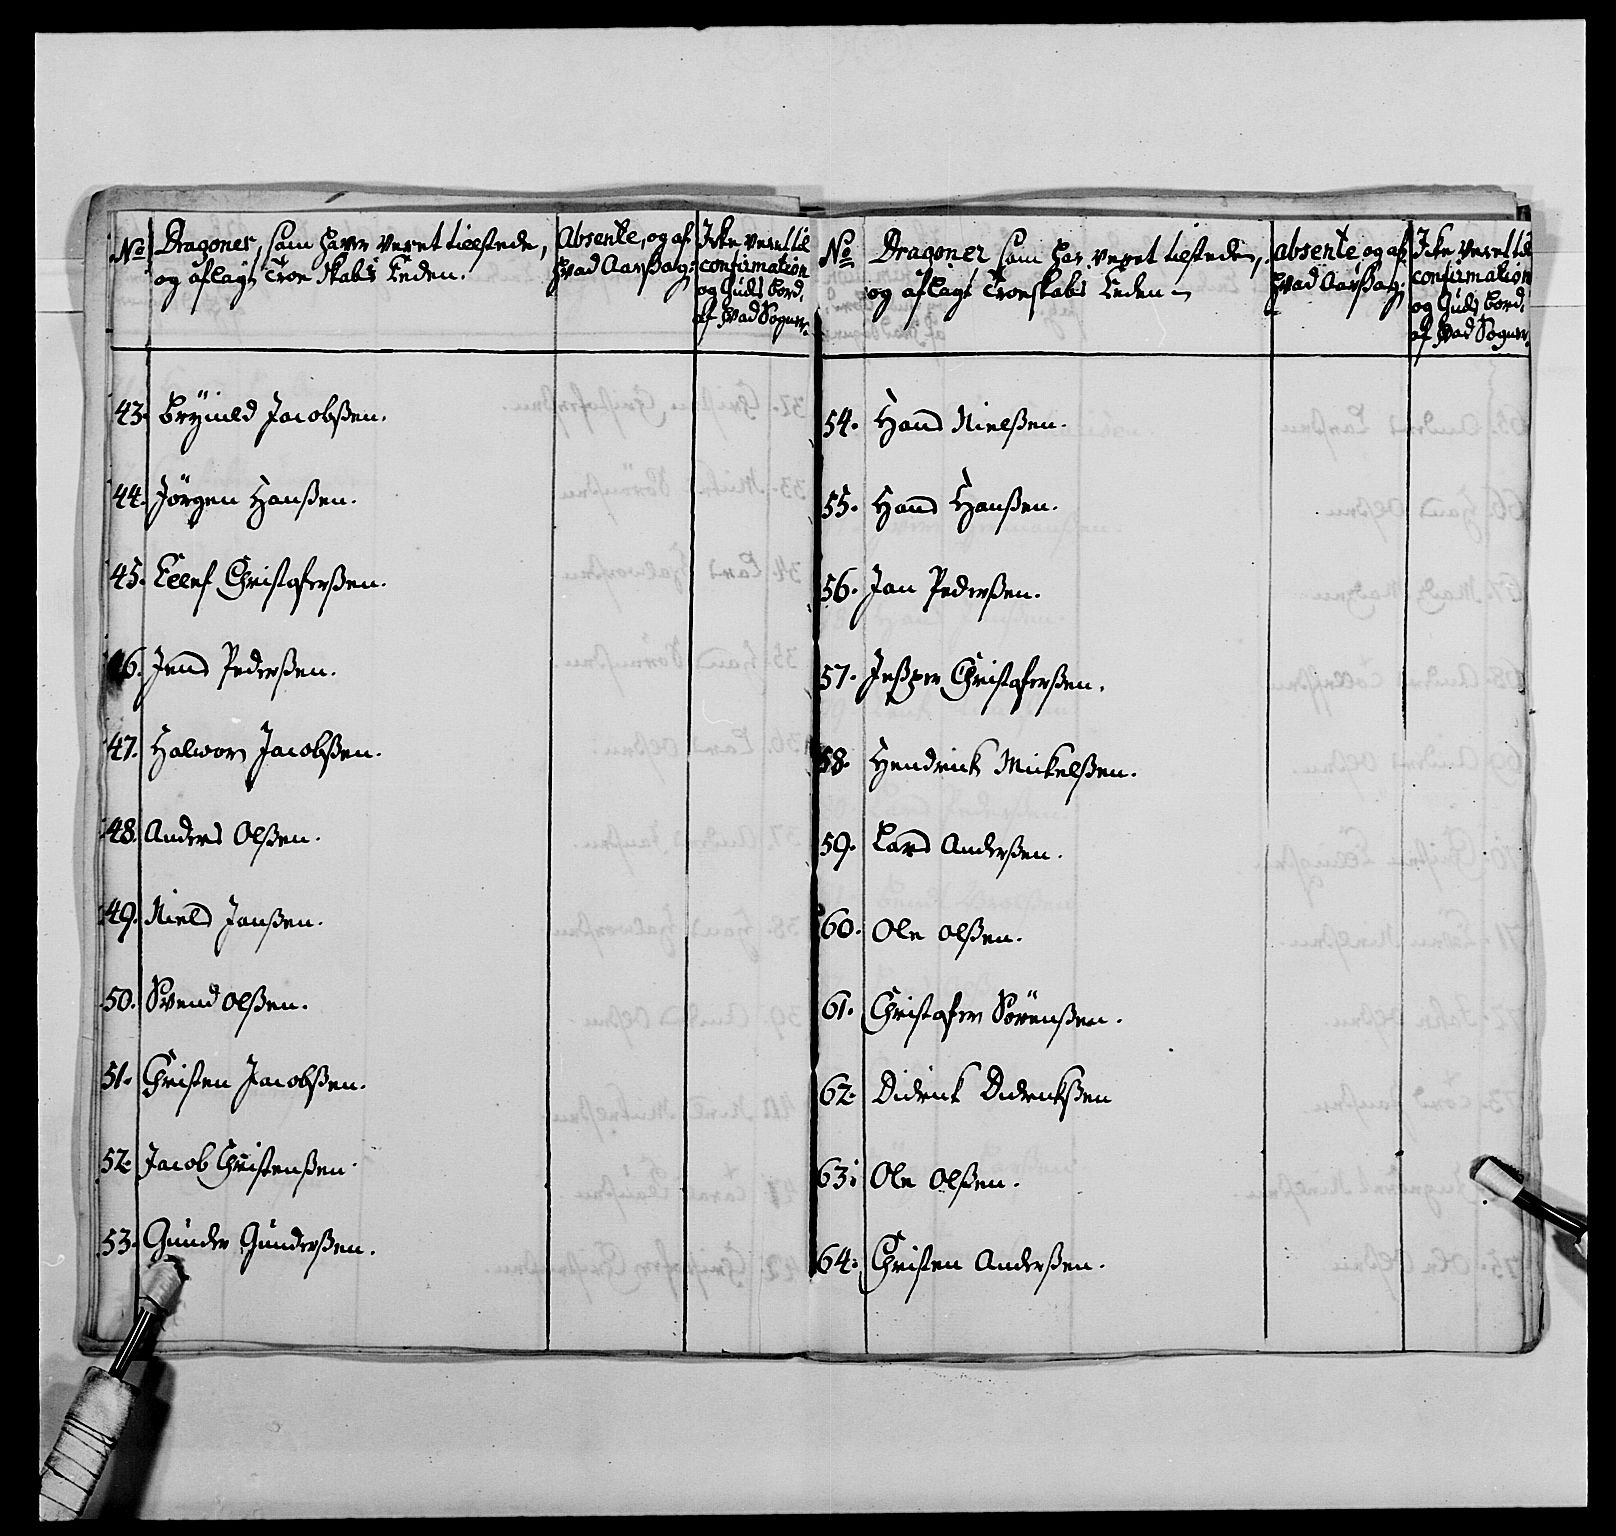 No
Dragoner, som haver veret tilstede,
og aflagt Troe skabs Eeden.
Absente, og af
hvad Aarßag:
Icke veret til
confirmation
og Guds bord,
af hvad Sogner.
43. Brynild Jacobßen.
44. Jörgen Hanßen.
45. Ellef Christoferßen.
46. Jens Pederßen.
47. Halvor Jacobßen.
48. Anders Olßen.
49. Niels Janßen.
50. Svend Olßen.
51. Christen Jacobßen.
52. Jacob Christenßen.
53. Gunder Gunderßen.
No
Dragoner som har veret tilstede,
og aflagt Troeskabs Eeden
absente og af
hvad Aarßag:
Icke veret til
confirmation
og Guds bord,
af hvad Sogner.
54. Hans Nielßen.
55. Hans Hanßen.
56. Jan Pederßen.
57. Jeßper Christoferßen.
58. Hendrick Mickelßen.
59. Lars Anderßen.
60. Ole Olßen.
61. Christofer Sörenßen.
62. Didrick Didrickßen
63. Ole Olßen.
64. Christen Anderßen.